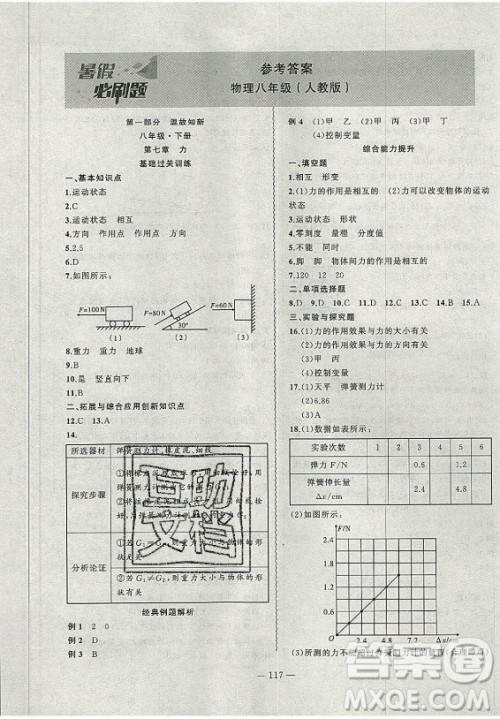 暑假
必刷题
参考答案
物理八年级(人教版)
第一部分 温故知新
八年级·下册
第七章 力
基础过关训练
一、基本知识点
1.运动状态
2.C
3.运动状态 相互
4.方向 作用点 作用点
5.2.5
6.D
7.如图所示:
F=100N
F=80N
30°
F=60N
(1) (2) (3)
8.重力 重力 地球
9.B
10.是 竖直向下
二、拓展与综合应用创新知识点
11.B 12.C 13.D
14.
所选器材
弹簧测力计、橡皮泥、细线
探究步骤
分析论证
①若G₁=G₂,则重力大小与物体的形状无关
②若G₁≠G₂,则重力大小与物体的形状有关
经典例题解析
例1 2 0
例2 D
例3 B
例4 (1)甲 乙 (2)甲 丙 (3)甲 丁
(4)控制变量
综合能力提升
一、填空题
1.相互 形变
2.(1)力的作用是相互的 (2)力可以改变物体的运动
状态
3.运动状态 形状
4.零刻度 量程 分度值
5.不能 同时
6.脚 脚 物体间力的作用是相互的
7.120 12 20
二、单项选择题
8.D 9.D 10.C 11.A 12.C 13.B 14.B 15.A
三、实验与探究题
16.(1)力的作用效果与力的大小有关
(2)力的作用效果与力的方向有关
(3)甲 丙
(4)控制变量
17.(1)天平 弹簧测力计
(2)6.86
18.(1)数据如表所示:
实验次数 1 2 3 4 5 6
弹力F/N 0.6 1.2
弹簧伸长量 Δs/cm 2.4 4.8
(2)如图所示:
F/N
2.4
1.8
1.2
0.6
0 2.4 4.8 7.2 Δs/cm
— 117 —
互助文档
答案圈
MXQE.COM